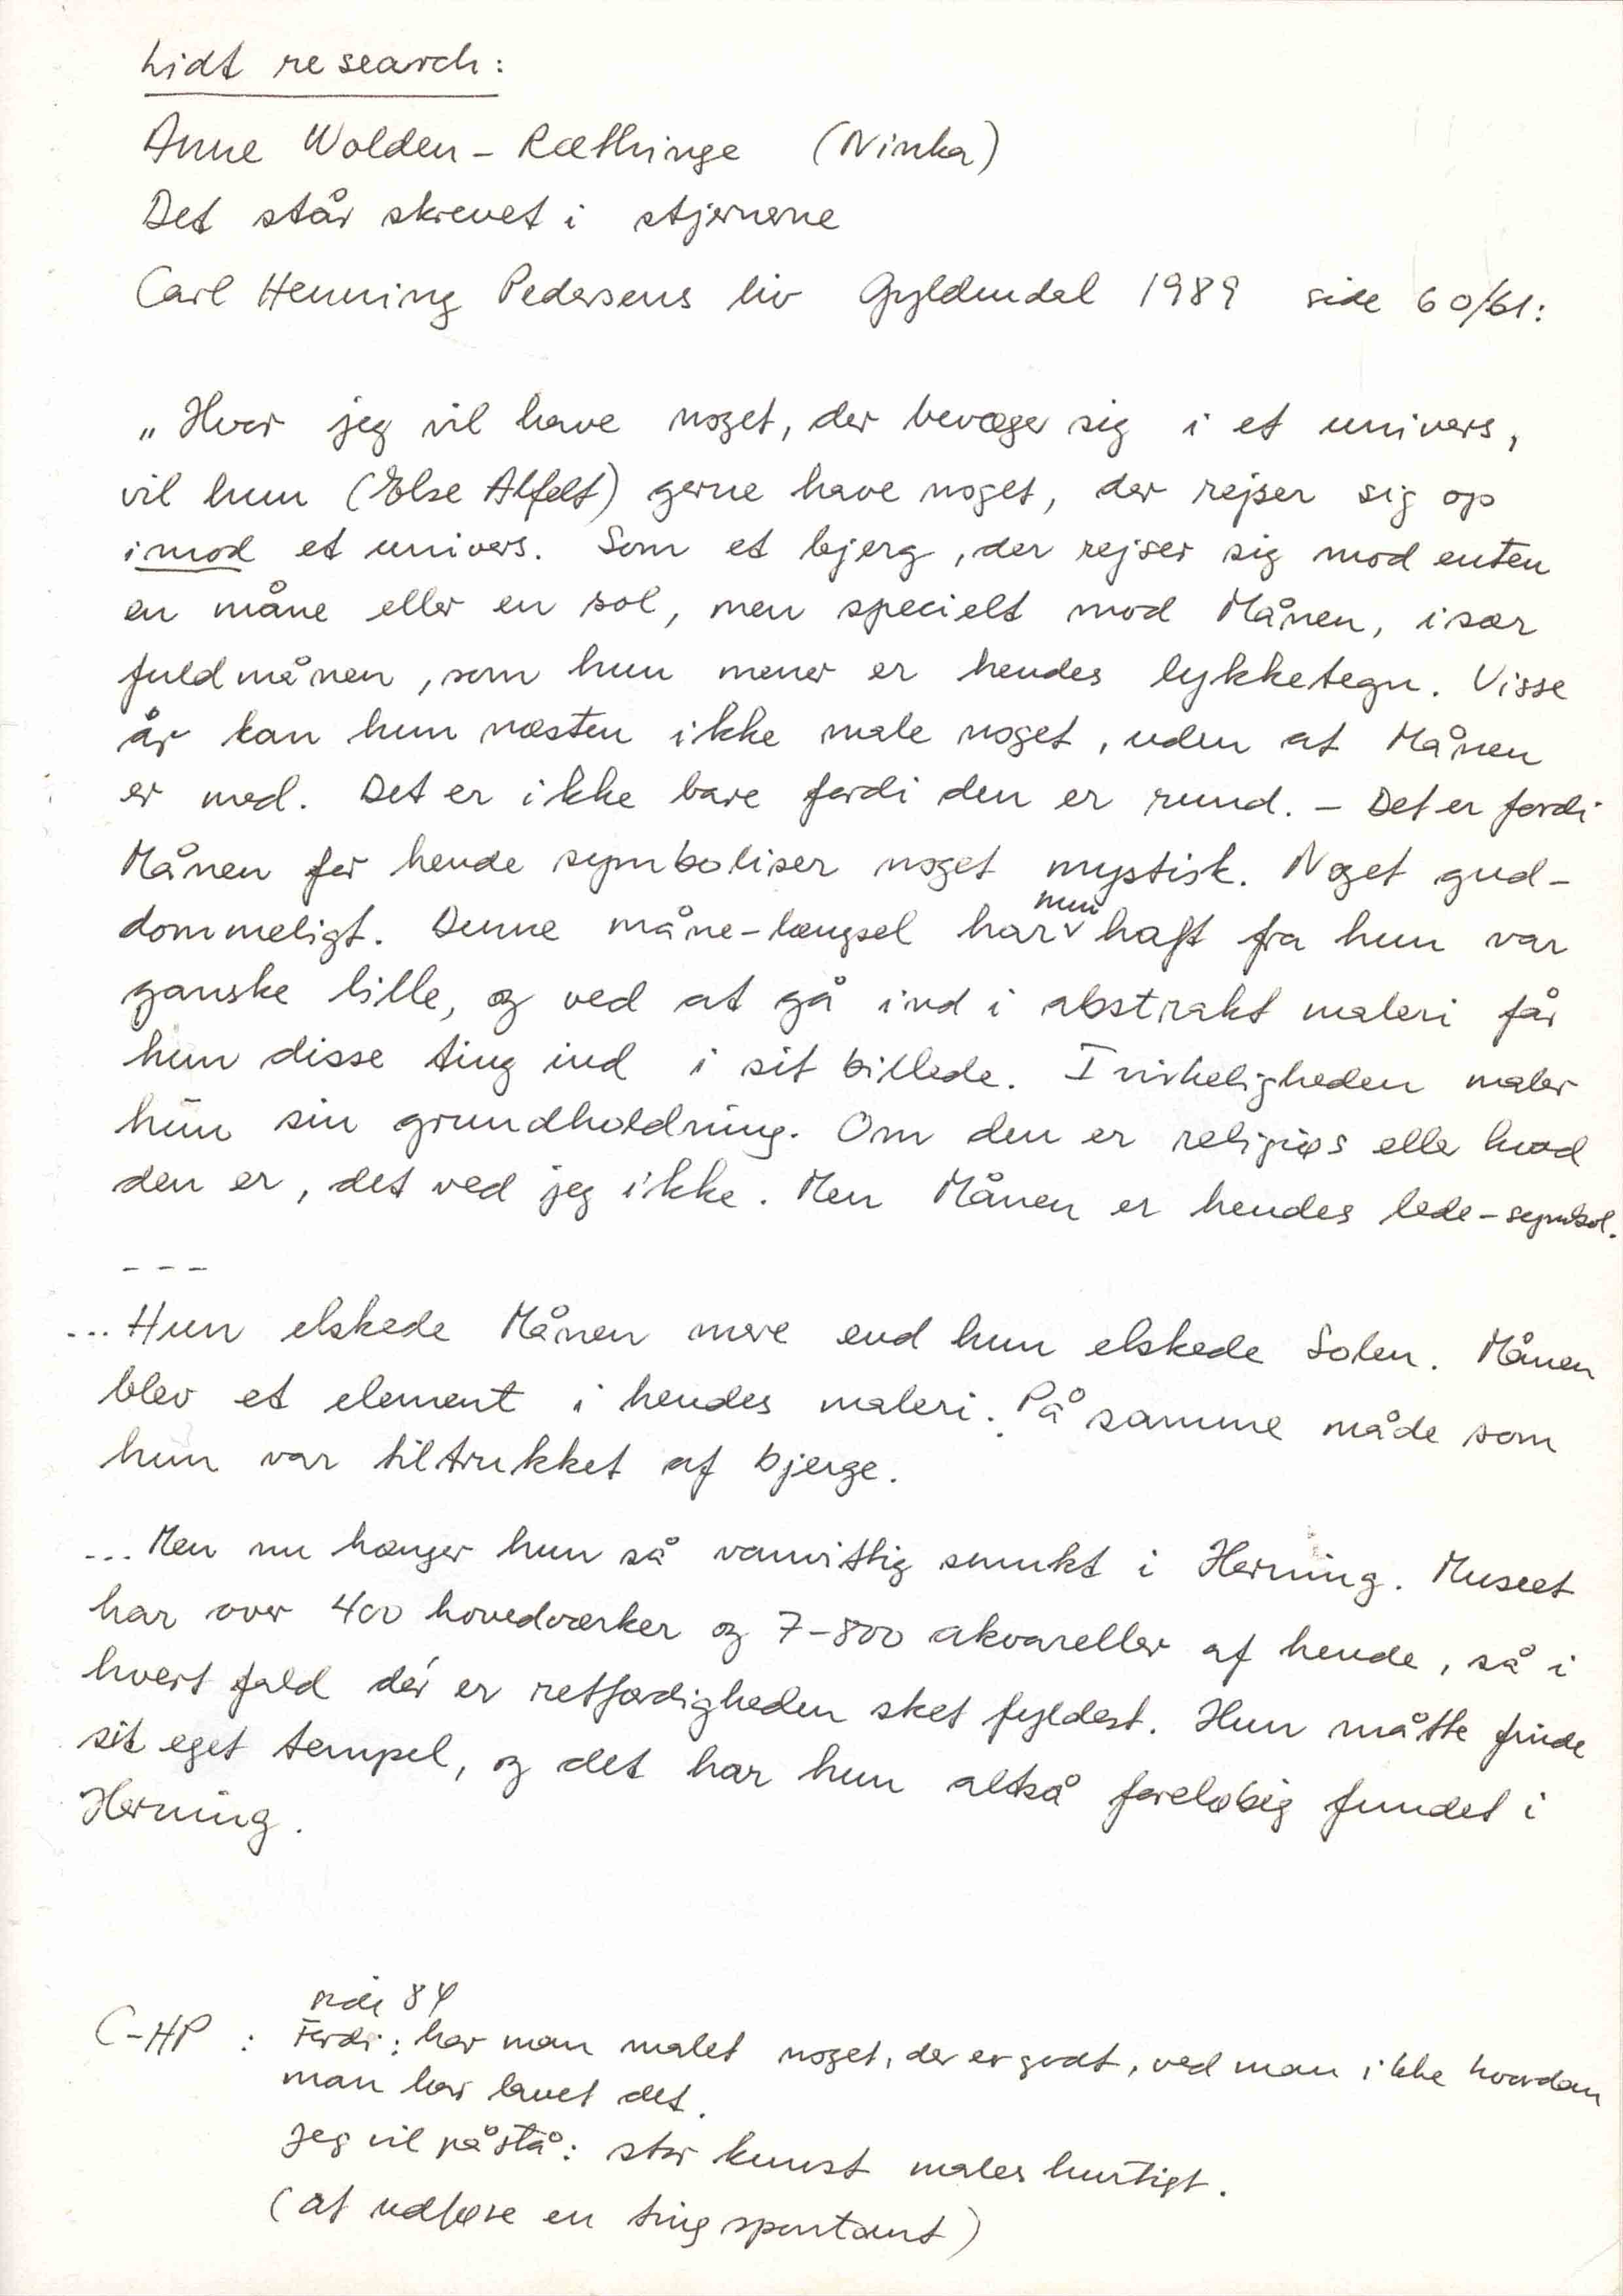 Lidt research:
Anne Wolden-Ræthinge (Ninka)
Det står skrevet i stjernerne
Carl Henning Pedersens liv Gyldendal 1989 side 60/61:
„Hvor jeg vil have noget, der bevæger sig i et univers,
vil hun (Else Alfelt) gerne have noget, der rejser sig op
imod et univers. Som et bjerg, der rejser sig mod enten
en måne eller en sol, men specielt mod Månen, især
fuldmånen, som hun mener er hendes lykketegn. Visse
år kan hun næsten ikke male noget, uden at Månen
er med. Det er ikke bare fordi den er rund. – Det er fordi
Månen for hende symboliser noget mystisk. Noget gud-
dommeligt. Denne måne-længsel har hun haft fra hun var
ganske lille, og ved at gå ind i abstrakt maleri får
hun disse ting ind i sit billede. I virkeligheden maler
hun sin grundholdning. Om den er religiøs elle hvad
den er, det ved jeg ikke. Men Månen er hendes lede-symbol.
---
... Hun elskede Månen mere end hun elskede Solen. Månen
blev et element i hendes maleri. På samme måde som
hun var tiltrukket af bjerge.
... Men nu hænger hun så vanvittig smukt i Herning. Museet
har over 400 hovedværker og 7-800 akvareller af hende, så i
hvert fald dér er retfærdigheden sket fyldest. Hun måtte finde
sit eget tempel, og det har hun altså foreløbig fundet i
Herning.
side 84
C-HP : Fordi: har man malet noget, der er godt, ved man ikke hvordan
man har lavet det.
Jeg vil påstå: stor kunst males hurtigt.
(at udføre en ting spontant)